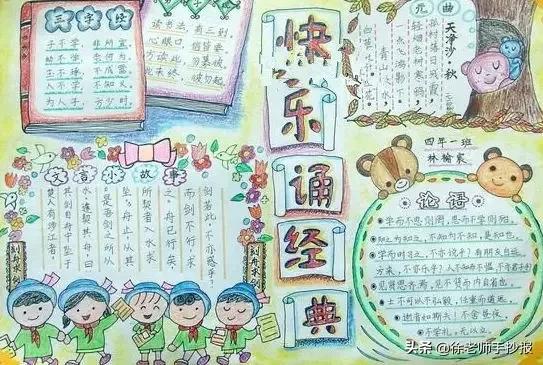 三字经
子不学 非所宜
幼不学 老何为
玉不琢 不成器
人不学 不知义
为人子 方少时
读书法 有三到
心眼口 信皆要
方读此 勿慕彼
此未终 彼勿起
快乐诵经典
元曲
天净沙·秋
孤村落日残霞,
轻烟老树寒鸦,
一点飞鸿影下。
青山绿水,
白草红叶黄花。
四年一班
文言小故事
刻舟求剑
楚人有涉江者,
其剑自舟中坠于
水,遽契其舟,曰:
是吾剑之所从
坠。舟止,从其
所契者入水求
之。舟已行矣,
而剑不行,求
剑若此,不亦惑乎?
刻舟求剑
论语
学而不思则罔,思而不学则殆。
知之为知之,不知为不知,是知也。
学而时习之,不亦说乎?有朋自远
方来,不亦乐乎?人不知而不愠,不亦君子乎?
见贤思齐焉,见不贤而内自省也。
士不可以不弘毅,任重而道远。
逝者如斯夫!不舍昼夜。
不学礼,无以立。
头条 @徐老师手抄报